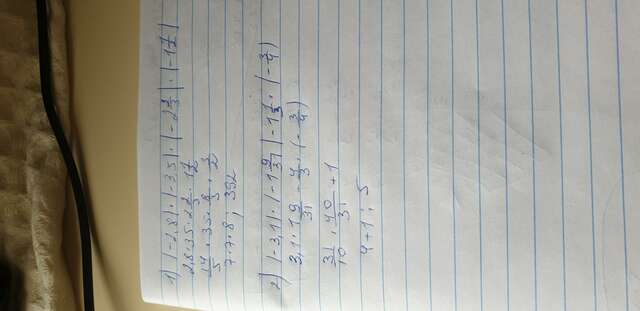 1) |-2,8|·|-3,5|·|-2 2/3|·|-1 1/2|
2,8·3,5·2 2/3·1 1/2
14/5·35·8/3·3/2
7·7·8; 392
2) |-3,1|·|-1 9/31|-1 1/3·(-3/4)
3,1·1 9/31-4/3·(-3/4)
31/10·40/31+1
4+1; 5